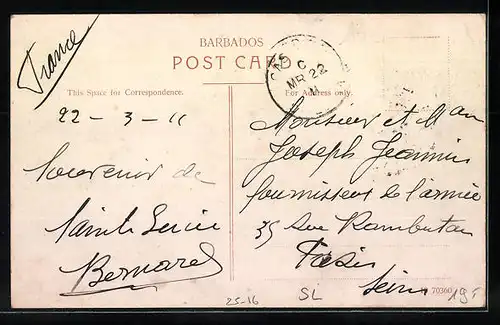 France
BARBADOS
POST CARD
This Space for Correspondence.
For Address only.
C
MR 22
11
22 - 3 - 11
Souvenir de
Sainte Lucie
Bernard
Monsieur et Mme
Joseph Jeannin
fournisseur de l'armée
35 Rue Rambuteau
Paris
Seine
70360
25-16
SL